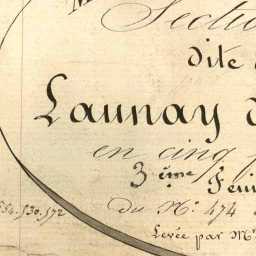 Section
dite
Launay
en cinq
3ème Feui
du N° 474
Levée par Mr